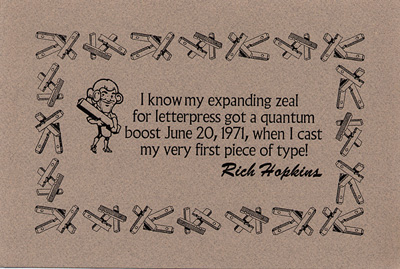 I know my expanding zeal
for letterpress got a quantum
boost June 20, 1971, when I cast
my very first piece of type!
Rich Hopkins